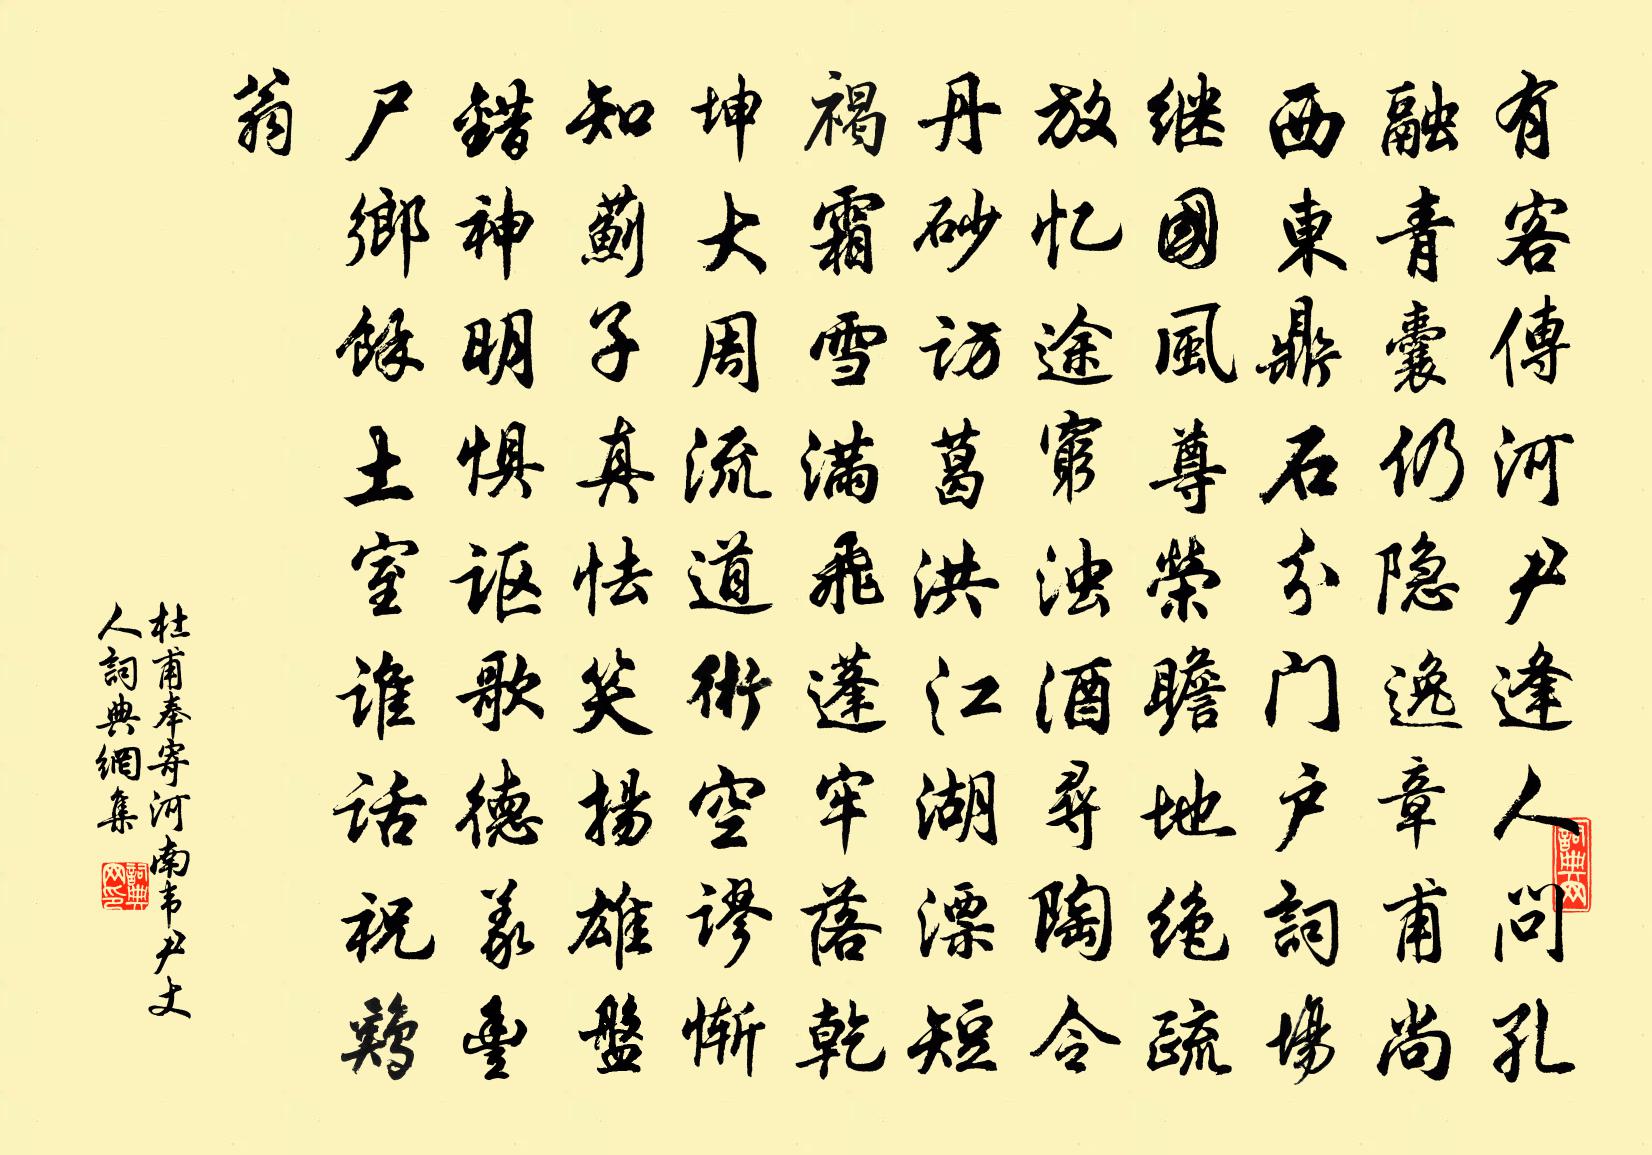 有客傳河尹逢人問孔
融青囊仍隐逸章甫尚
西東鼎石分门户詞場
继國風尊榮瞻地绝疏
放忆途窮浊酒尋陶令
丹砂訪葛洪江湖漂短
褐霜雪满飛蓬牢落乾
坤大周流道術空谬慚
知薊子真怯笑揚雄盤
錯神明惧讴歌德義豊
尸鄉餘土室谁话祝鶏
翁
杜甫奉寄河南韦尹丈
人詞典網集
詞典网印
詞典网